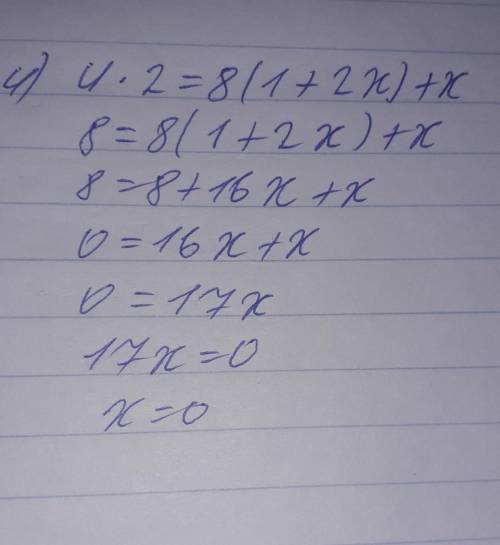 4) 4 · 2 = 8(1 + 2x) + x
8 = 8(1 + 2x) + x
8 = 8 + 16x + x
0 = 16x + x
0 = 17x
17x = 0
x = 0